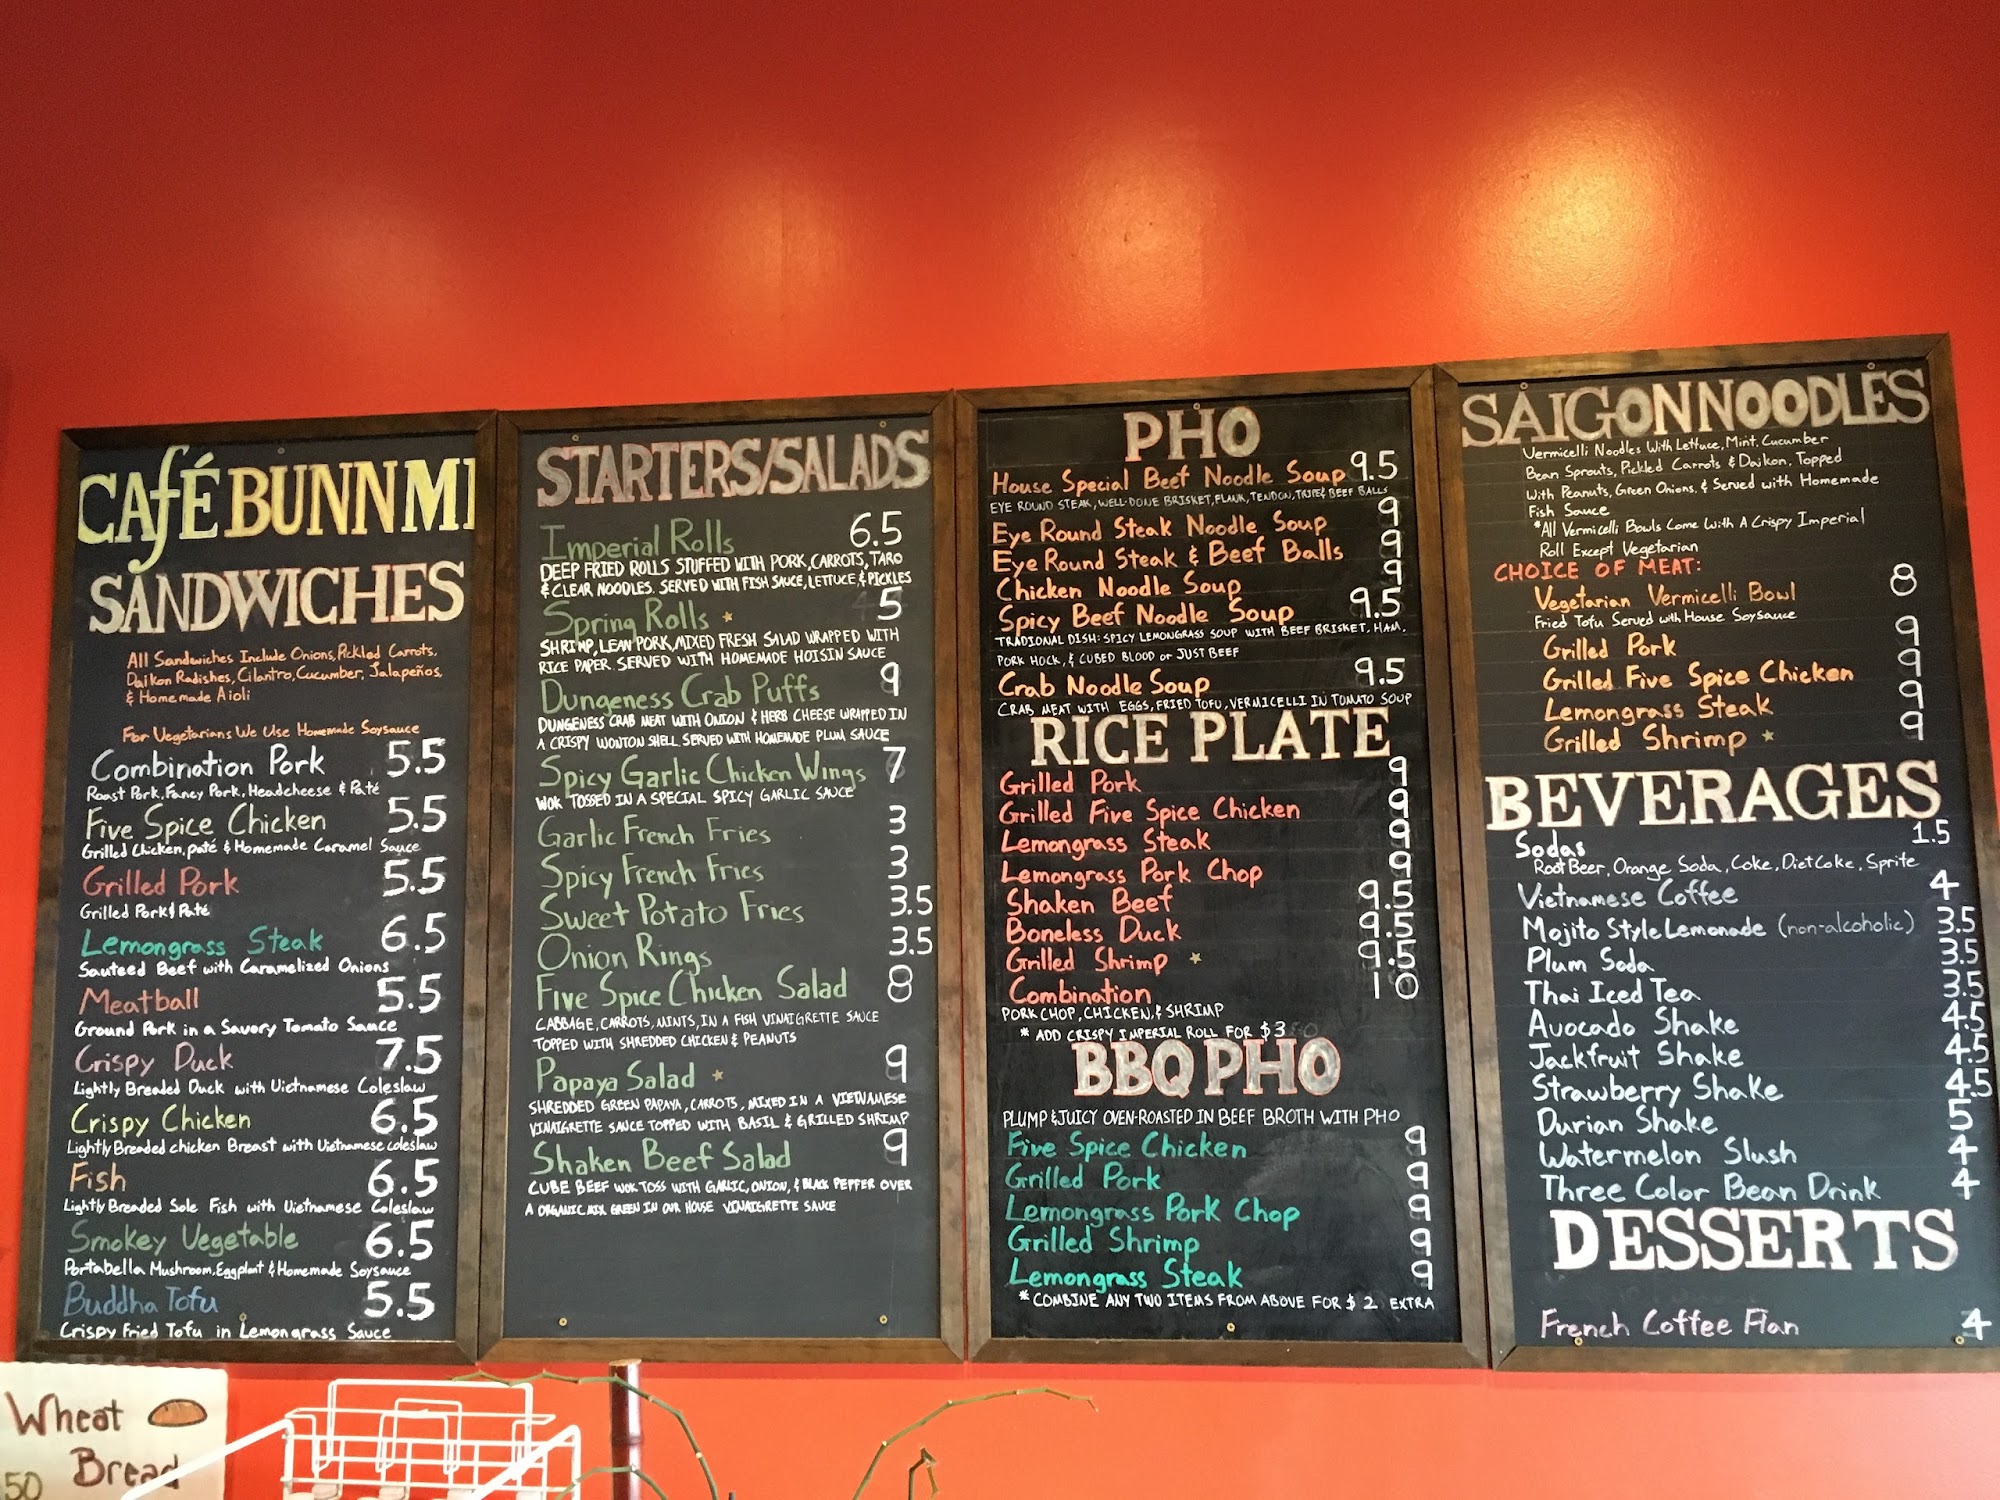 CAFÉ BUNN MI
SANDWICHES
All Sandwiches Include Onions, Pickled Carrots,
Daikon Radishes, Cilantro, Cucumber, Jalapeños,
& Homemade Aioli
For Vegetarians We Use Homemade Soysauce
Combination Pork 5.5
Roast Pork, Fancy Pork, Headcheese & Paté
Five Spice Chicken 5.5
Grilled Chicken, paté & Homemade Caramel Sauce
Grilled Pork 5.5
Grilled Pork & Paté
Lemongrass Steak 6.5
Sauteed Beef with Caramelized Onions
Meatball 5.5
Ground Pork in a Savory Tomato Sauce
Crispy Duck 7.5
Lightly Breaded Duck with Vietnamese Coleslaw
Crispy Chicken 6.5
Lightly Breaded chicken Breast with Vietnamese coleslaw
Fish 6.5
Lightly Breaded Sole Fish with Vietnamese Coleslaw
Smokey Vegetable 6.5
Portabella Mushroom, Eggplant & Homemade Soysauce
Buddha Tofu 5.5
Crispy Fried Tofu in Lemongrass Sauce
STARTERS/SALADS
Imperial Rolls 6.5
DEEP FRIED ROLLS STUFFED WITH PORK, CARROTS, TARO
& CLEAR NOODLES. SERVED WITH FISH SAUCE, LETTUCE, & PICKLES
Spring Rolls ★ 5
SHRIMP, LEAN PORK, MIXED FRESH SALAD WRAPPED WITH
RICE PAPER. SERVED WITH HOMEMADE HOISIN SAUCE
Dungeness Crab Puffs 9
DUNGENESS CRAB MEAT WITH ONION & HERB CHEESE WRAPPED IN
A CRISPY WONTON SHELL. SERVED WITH HOMEMADE PLUM SAUCE
Spicy Garlic Chicken Wings 7
WOK TOSSED IN A SPECIAL SPICY GARLIC SAUCE
Garlic French Fries 3
Spicy French Fries 3
Sweet Potato Fries 3.5
Onion Rings 3.5
Five Spice Chicken Salad 8
CABBAGE, CARROTS, MINTS, IN A FISH VINAIGRETTE SAUCE
TOPPED WITH SHREDDED CHICKEN & PEANUTS
Papaya Salad ★ 9
SHREDDED GREEN PAPAYA, CARROTS, MIXED IN A VIETNAMESE
VINAIGRETTE SAUCE TOPPED WITH BASIL & GRILLED SHRIMP
Shaken Beef Salad 9
CUBE BEEF WOK TOSS WITH GARLIC, ONION, & BLACK PEPPER OVER
A ORGANIC MIX GREEN IN OUR HOUSE VINAIGRETTE SAUCE
PHO
House Special Beef Noodle Soup 9.5
EYE ROUND STEAK, WELL-DONE BRISKET, FLANK, TENDON, TRIPE & BEEF BALLS
Eye Round Steak Noodle Soup 9
Eye Round Steak & Beef Balls 9
Chicken Noodle Soup 9
Spicy Beef Noodle Soup 9.5
TRADIONAL DISH: SPICY LEMONGRASS SOUP WITH BEEF BRISKET, HAM,
PORK HOCK, & CUBED BLOOD or JUST BEEF
Crab Noodle Soup 9.5
CRAB MEAT WITH EGGS, FRIED TOFU, VERMICELLI IN TOMATO SOUP
RICE PLATE
Grilled Pork 9
Grilled Five Spice Chicken 9
Lemongrass Steak 9
Lemongrass Pork Chop 9
Shaken Beef 9.5
Boneless Duck 9.5
Grilled Shrimp ★ 9.5
Combination 10
PORK CHOP, CHICKEN, & SHRIMP
* ADD CRISPY IMPERIAL ROLL FOR $3
BBQ PHO
PLUMP & JUICY OVEN-ROASTED IN BEEF BROTH WITH PHO
Five Spice Chicken 9
Grilled Pork 9
Lemongrass Pork Chop 9
Grilled Shrimp 9
Lemongrass Steak 9
* COMBINE ANY TWO ITEMS FROM ABOVE FOR $2 EXTRA
SAIGON NOODLES
Vermicelli Noodles With Lettuce, Mint, Cucumber
Bean Sprouts, Pickled Carrots & Daikon, Topped
With Peanuts, Green Onions, & Served with Homemade
Fish Sauce
*All Vermicelli Bowls Come With A Crispy Imperial
Roll Except Vegetarian
CHOICE OF MEAT:
Vegetarian Vermicelli Bowl 8
Fried Tofu Served with House Soysauce
Grilled Pork 9
Grilled Five Spice Chicken 9
Lemongrass Steak 9
Grilled Shrimp ★ 9
BEVERAGES
Sodas 1.5
Root Beer, Orange Soda, Coke, Diet Coke, Sprite
Vietnamese Coffee 4
Mojito Style Lemonade (non-alcoholic) 3.5
Plum Soda 3.5
Thai Iced Tea 3.5
Avocado Shake 4.5
Jackfruit Shake 4.5
Strawberry Shake 4.5
Durian Shake 5
Watermelon Slush 4
Three Color Bean Drink 4
DESSERTS
French Coffee Flan 4
Wheat
Bread
50